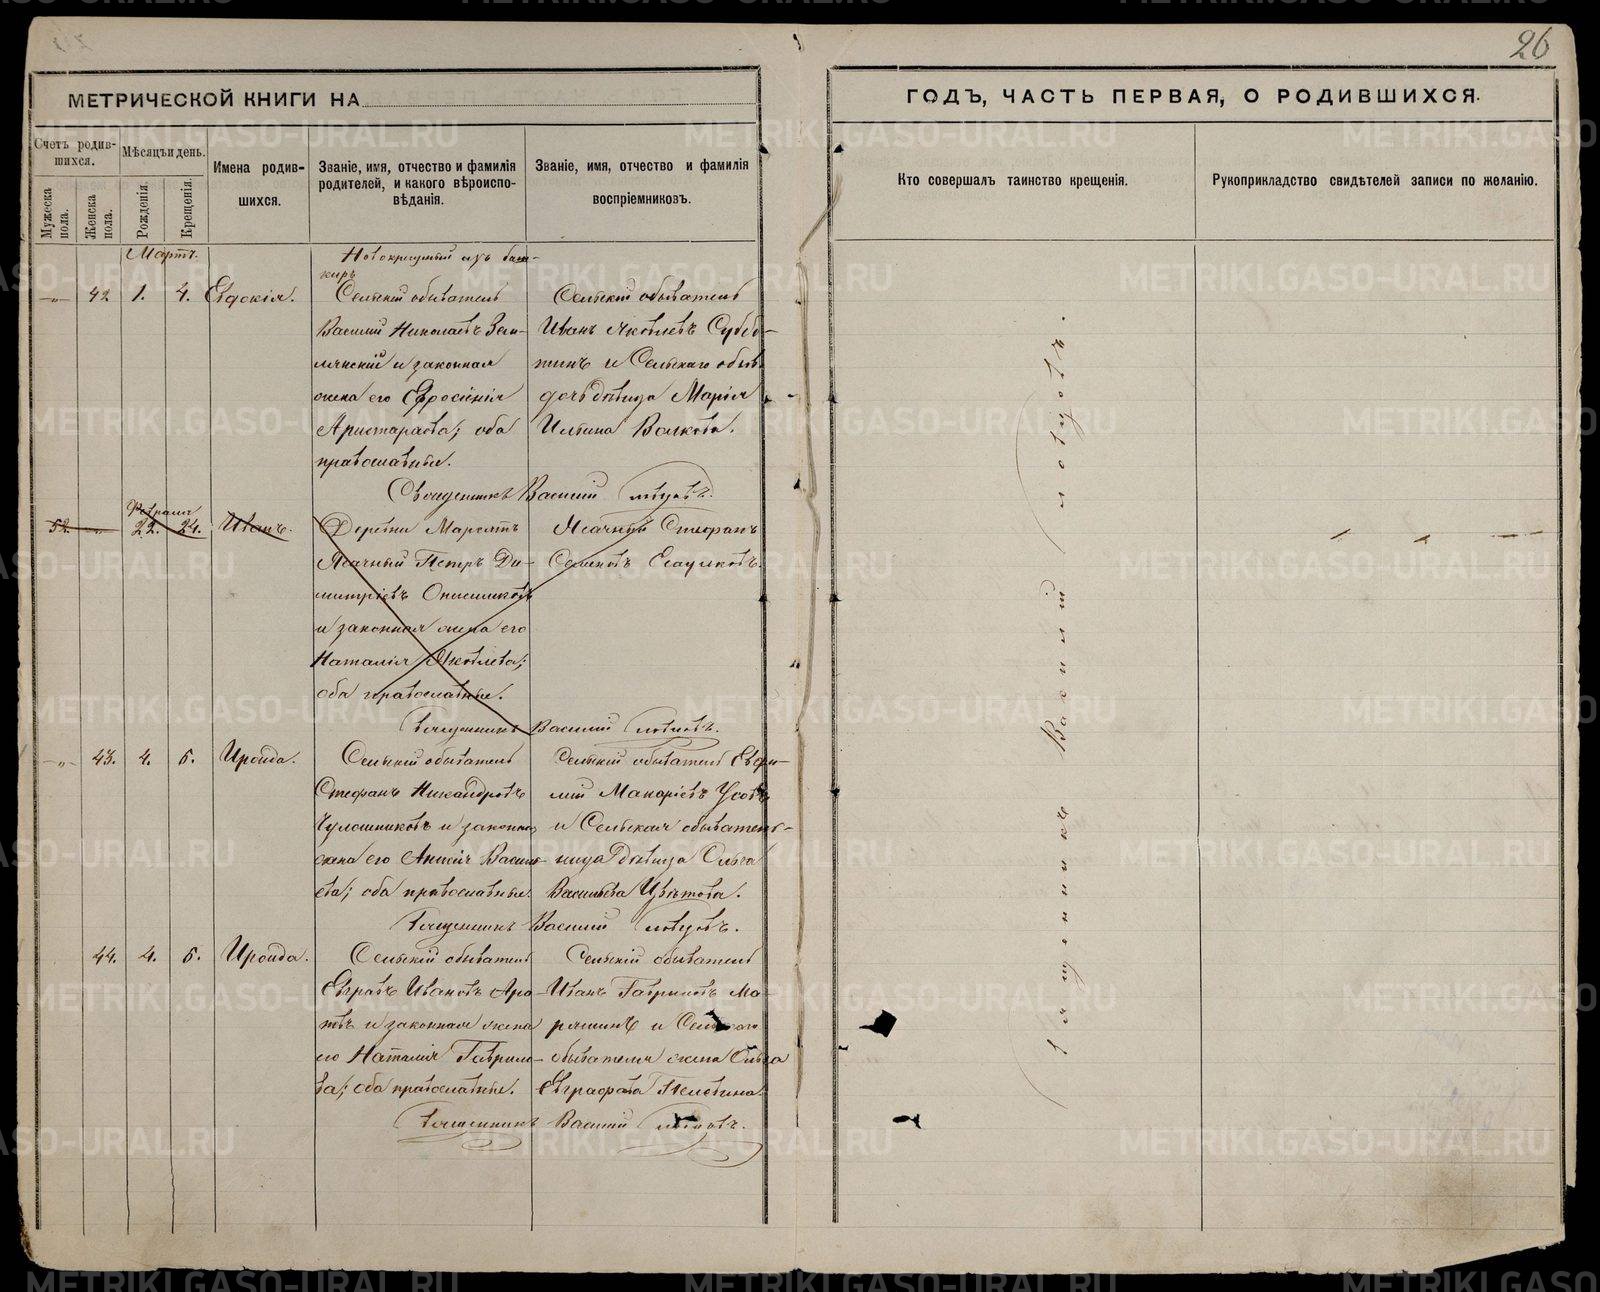 26
МЕТРИЧЕСКОЙ КНИГИ НА
ГОДЪ, ЧАСТЬ ПЕРВАЯ, О РОДИВШИХСЯ.
Счетъ родив-
шихся.
Мужеска пола.
Женска пола.
Мѣсяцъ и день.
Рожденія.
Крещенія.
Имена родив-
шихся.
Званіе, имя, отчество и фамилія
родителей, и какого вѣроиспо-
вѣданія.
Званіе, имя, отчество и фамилія
воспріемниковъ.
Кто совершалъ таинство крещенія.
Рукоприкладство свидѣтелей записи по желанію.
Мартъ.
42 1. 4. Евдокія.
Новокрещеный изъ баш-
киръ
Сельскій обыватель
Василій Николаевъ Зем-
лянскій и законная
жена его Евросинія
Аристархова; оба
православные.
Сельскій обыватель
Иванъ Яковлевъ Суббо-
тинъ и Сельскаго обыв.
дочь дѣвица Марія
Ильина Волкова.
Священникъ Василій
Февраля
52. 22. 24. Иванъ.
Деревни
Ясачный Петръ Ди-
митріевъ
и законная жена его
Наталія Яковлева;
оба православные.
Ясачный Стефанъ
Священникъ Василій
43. 4. 6. Ироида.
Сельскій обыватель
Стефанъ Никандровъ
Чулошниковъ и законная
жена его Анисія Василь-
ева; оба православные.
Сельскій обыватель Евфи-
мій Макаріевъ Усовъ
и Сельская обыватель-
ница дѣвица Ольга
Васильева Цвѣтова.
Священникъ Василій
44. 4. 6. Ироида.
Сельскій обыватель
Евграфъ Ивановъ
и законная жена
его Наталія Гаврило-
ва; оба православные.
Сельскій обыватель
Иванъ Гавриловъ
и Сельскаго
обывателя жена Ольга
Евграфова
Священникъ Василій
Священникъ Василій
METRIKI.GASO-URAL.RU